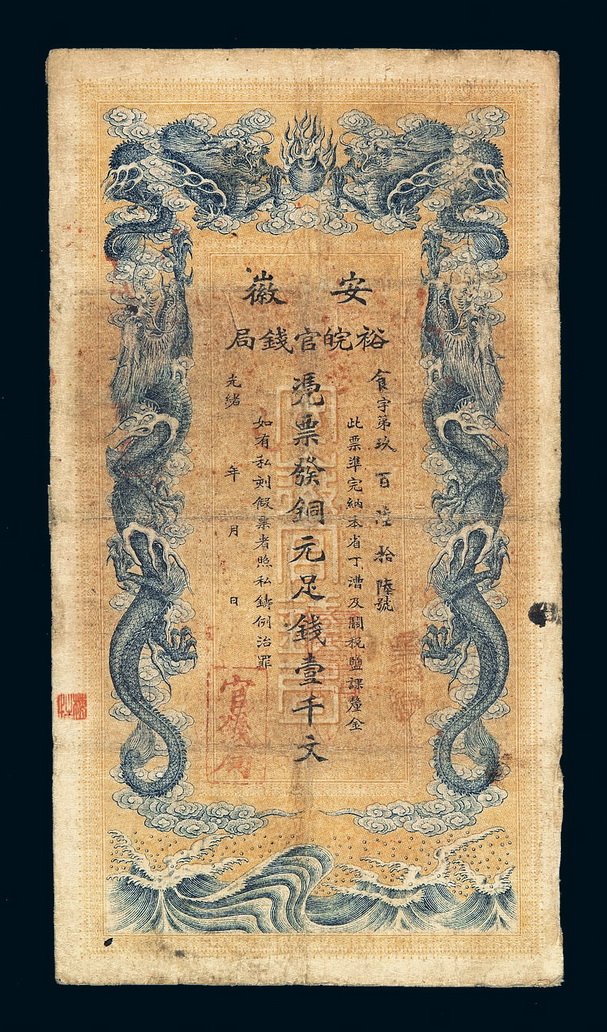 安徽
裕皖官錢局
食字第玖百陸拾陸號
此票準完納本省丁漕及關稅鹽課釐金
憑票發銅元足錢壹千文
如有私刻假票者照私鑄例治罪
光緒 年 月 日